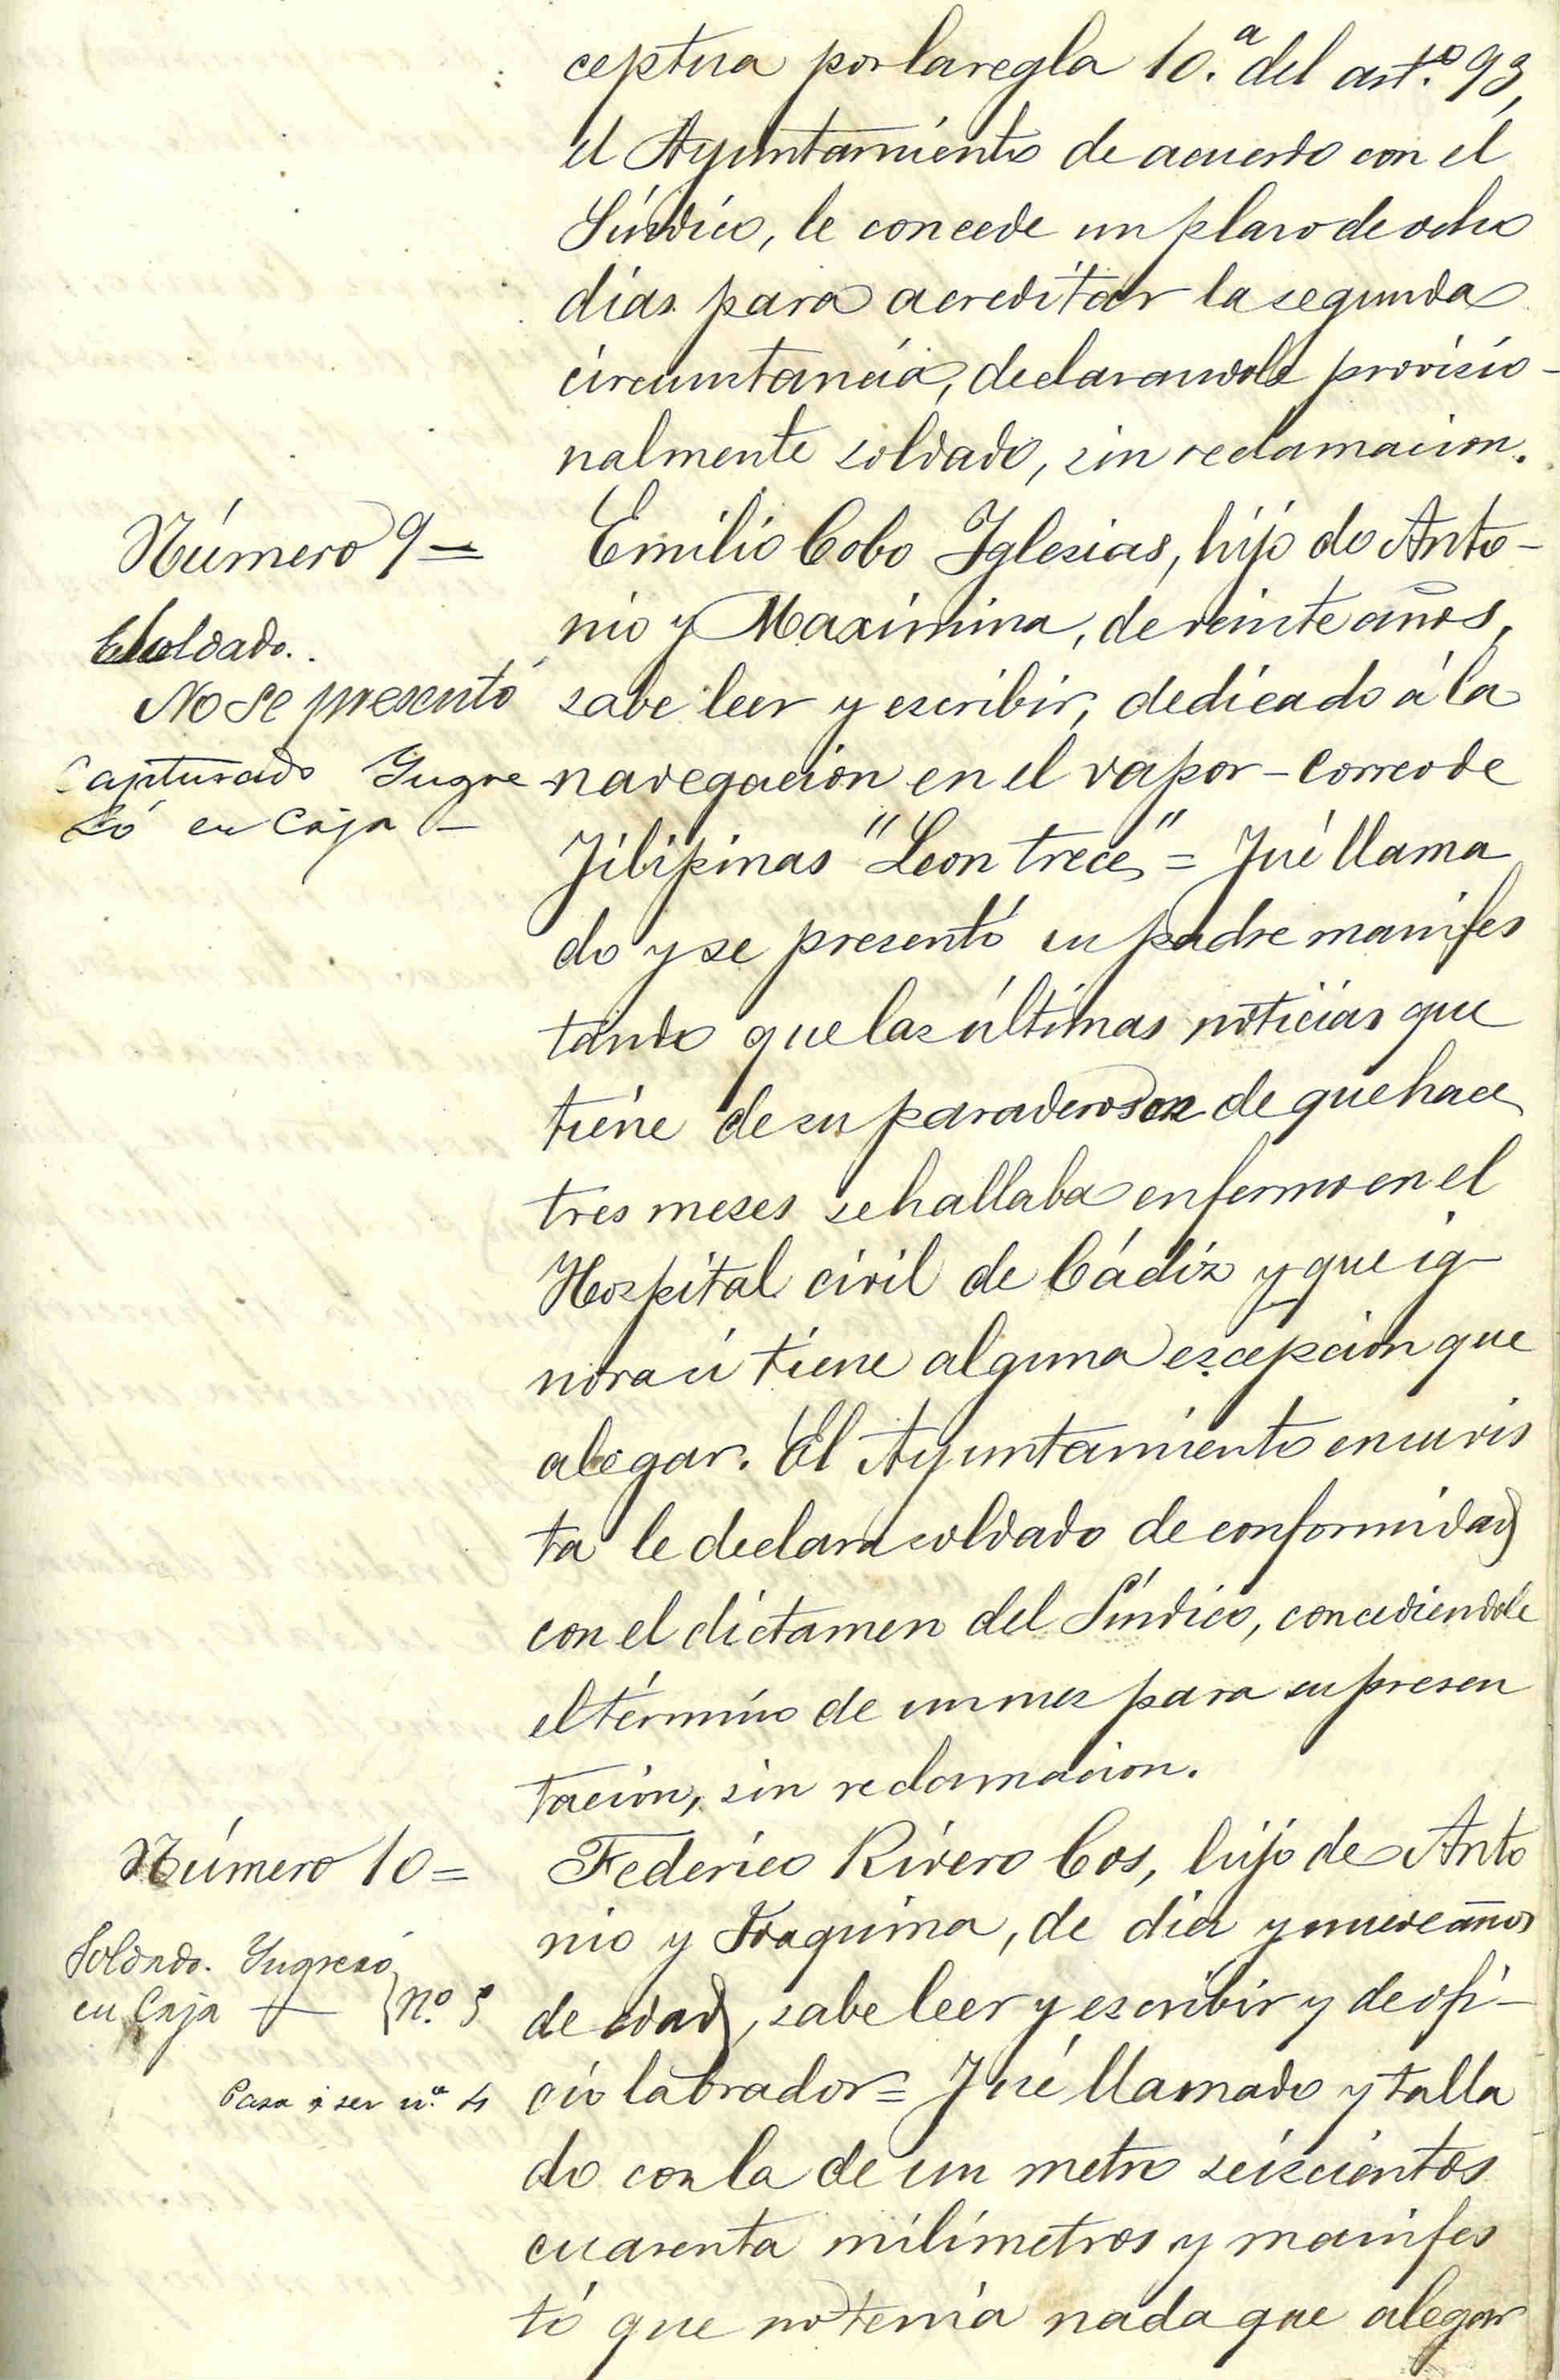 ceptua por la regla 10.ª del art.º 93,
el Ayuntamiento de acuerdo con el
Síndico, le concede un plazo de ocho
días para acreditar la segunda
circunstancia, declarandole provisio-
nalmente soldado, sin reclamacion.
Número 9 =
Soldado.
No se presentó
Capturado Ingre
só en Caja -
Emilio Cobo Iglesias, hijo de Anto-
nio y Maximina, de veinte años,
sabe leer y escribir, dedicado á la
navegacion en el vapor-correo de
Filipinas "Leon trece" = Fué llama
do y se presentó su padre manifes
tando que las últimas noticias que
tiene de su paradero son de que hace
tres meses se hallaba enfermo en el
Hospital civil de Cádiz y que ig-
nora si tiene alguna escepcion que
alegar. El Ayuntamiento en su vis
ta le declara soldado de conformidad
con el dictamen del Síndico, concediendole
el término de un mes para su presen
tación, sin reclamacion.
Número 10 =
Soldado. Ingresó
en Caja - Nº. 5
Pasa á ser nº 4
Federico Rivero Cos, hijo de Anto
nio y Joaquina, de diez y nueve años
de edad, sabe leer y escribir y de ofi-
cio labrador = Fué llamado y talla
do con la de un metro seiscientos
cuarenta milímetros y manifes
tó que no tenía nada que alegar